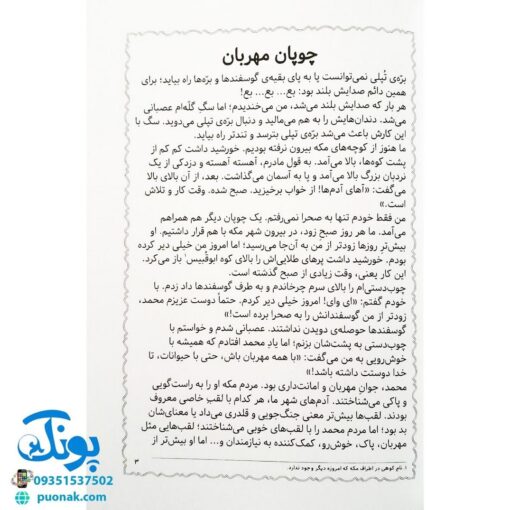 چوپان مهربان
برّه‌ی تُپلی نمی‌توانست پا به پای بقیه‌ی گوسفندها و برّه‌ها راه بیاید؛ برای
همین دائم صدایش بلند بود: بع... بع... بع!
هر بار که صدایش بلند می‌شد، من می‌خندیدم؛ اما سگِ گلّه‌ام عصبانی
می‌شد. دندان‌هایش را به هم می‌مالید و دنبال برّه‌ی تپلی می‌دوید. سگ با
این کارش باعث می‌شد برّه‌ی تپلی بترسد و تندتر راه بیاید.
ما هنوز از کوچه‌های مکه بیرون نرفته بودیم. خورشید داشت کم کم از
پشت کوه‌ها، بالا می‌آمد. به قول مادرم، آهسته آهسته و دزدکی از یک
نردبان بزرگ بالا می‌آمد و پا به آسمان می‌گذاشت. بعد، از آن بالای بالا
می‌گفت: «آهای آدم‌ها! از خواب برخیزید. صبح شده. وقت کار و تلاش
است.»
من فقط خودم تنها به صحرا نمی‌رفتم. یک چوپان دیگر هم همراهم
می‌آمد. ما هر روز صبحِ زود، در بیرون شهر مکه با هم قرار داشتیم. او
بیش‌ترِ روزها زودتر از من به آن‌جا می‌رسید؛ اما امروز من خیلی دیر کرده
بودم. خورشید داشت پرهای طلایی‌اش را بالای کوه ابوقُبیس۱ باز می‌کرد.
این کار یعنی، وقت زیادی از صبح گذشته است.
چوب‌دستی‌ام را بالای سرم چرخاندم و به طرف گوسفندها داد زدم. با
خودم گفتم: «ای وای! امروز خیلی دیر کردم. حتماً دوست عزیزم محمد،
زودتر از من گوسفندانش را به صحرا برده است!»
گوسفندها حوصله‌ی دویدن نداشتند. عصبانی شدم و خواستم با
چوب‌دستی به پشت‌شان بزنم؛ اما یادِ محمد افتادم که همیشه با
خوش‌رویی به من می‌گفت: «با همه مهربان باش، حتی با حیوانات، تا
خدا دوستت داشته باشد!»
محمد، جوانِ مهربان و امانت‌داری بود. مردم مکه او را به راست‌گویی
و پاکی می‌شناختند. آدم‌های شهر ما، هر کدام با لقبِ خاصی معروف
بودند. لقب‌ها بیش‌تر معنی جنگ‌جویی و قلدری می‌داد یا معنای‌شان
بد بود؛ اما مردم محمد را با لقب‌های خوبی می‌شناختند؛ لقب‌هایی مثل
مهربان، پاک، خوش‌رو، کمک‌کننده به نیازمندان و... اما او بیش‌تر از
۱. نام کوهی در اطراف مکه که امروزه دیگر وجود ندارد.
۳
پونک
09351537502
puonak.com